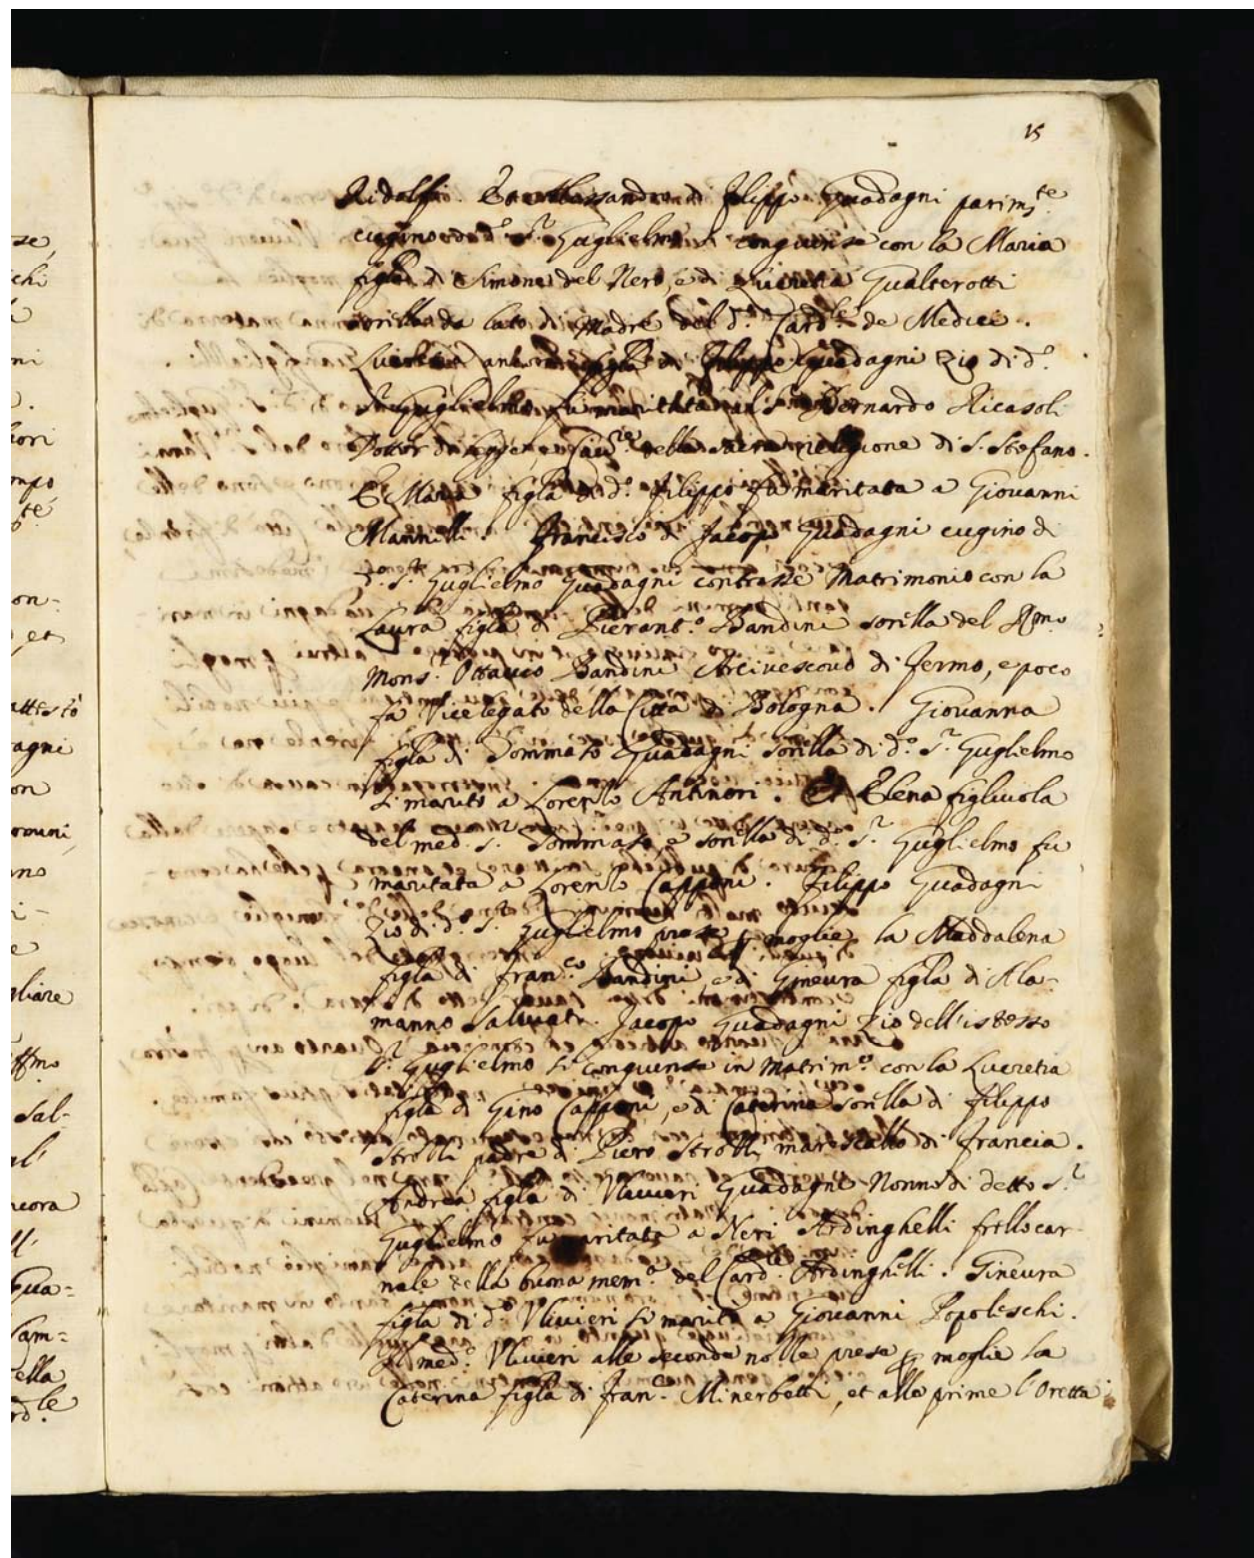 15
Ridolfi. Et Alessandro di Filippo Guadagni parim.te
cugino di d.o S.r Guglielmo si congiunse con la Maria
figla di Simone del Nero, e di Lucretia Gualterotti
sorella da lato di Madre del S.r Card.le de Medici.
Lucretia ancora figla di Filippo Guadagni Zio di d.o
S.r Guglielmo fu maritata al S.r Bernardo Ricasoli
Dottor di legge, e Cau.re della sacra religione di S. Stefano.
Et Maria figla di d.o Filippo fu maritata a Giouanni
Mannelli. Francesco di Jacopo Guadagni cugino di
d.o S.r Guglielmo Guadagni contrasse Matrimonio con la
Laura figla di Pierant.o Bandini sorella del R.mo
Mons.r Ottauio Bandini Arciuescouo di Fermo, e poco
fa Vicelegato della Citta di Bologna. Giouanna
figla di Tommaso Guadagni sorella di d.o S.r Guglielmo
si marito a Lorenzo Antinori. Et Elena figliuola
del med.o S.r Tommaso, e sorella di d.o S.r Guglielmo fu
maritata a Lorenzo Capponi. Filippo Guadagni
Zio di d.o S.r Guglielmo prese p moglie la Maddalena
figla di Fran.co Bandini, e di Gineura figla di Ala-
manno Saluiati. Jacopo Guadagni Zio dell'istesso
S.r Guglielmo si congiunse in Matrim.o con la Lucretia
figla di Gino Capponi, e di Caterina sorella di Filippo
Strozzi padre di Piero Strozzi mariscallo di Francia.
Andrea figla di Vliuieri Guadagni Nonno di detto S.r
Guglielmo fu maritata a Neri Ardinghelli frello car-
nale della buona mem.a del Card.le Ardinghelli. Gineura
figla di d.o Vliuieri si marito a Giouanni Popoleschi.
Il med.o Vliuieri alle seconde nozze prese p moglie la
Caterina figla di Fran.co Minerbetti, et alle prime l'Oretta